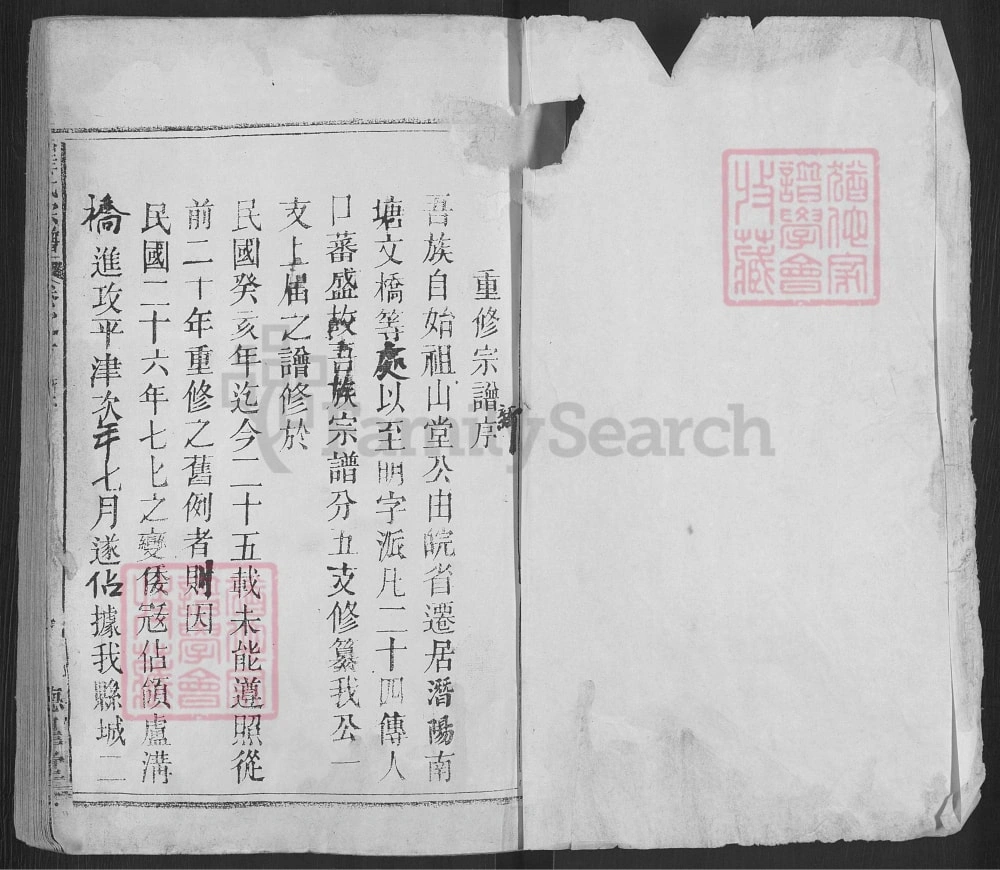 重修宗譜序
新
吾族自始祖山堂公由皖省遷居潛陽南
塘文橋等處以至明字派凡二十四傳人
口蕃盛故吾族宗譜分五支修纂我公一
支上届之譜修於
民國癸亥年迄今二十五載未能遵照從
前二十年重修之舊例者則因
民國二十六年七七之變倭冦佔領盧溝
橋進攻平津次年七月遂佔據我縣城二
猶他家
譜學會
收藏
猶他家
譜學會
收藏
FamilySearch